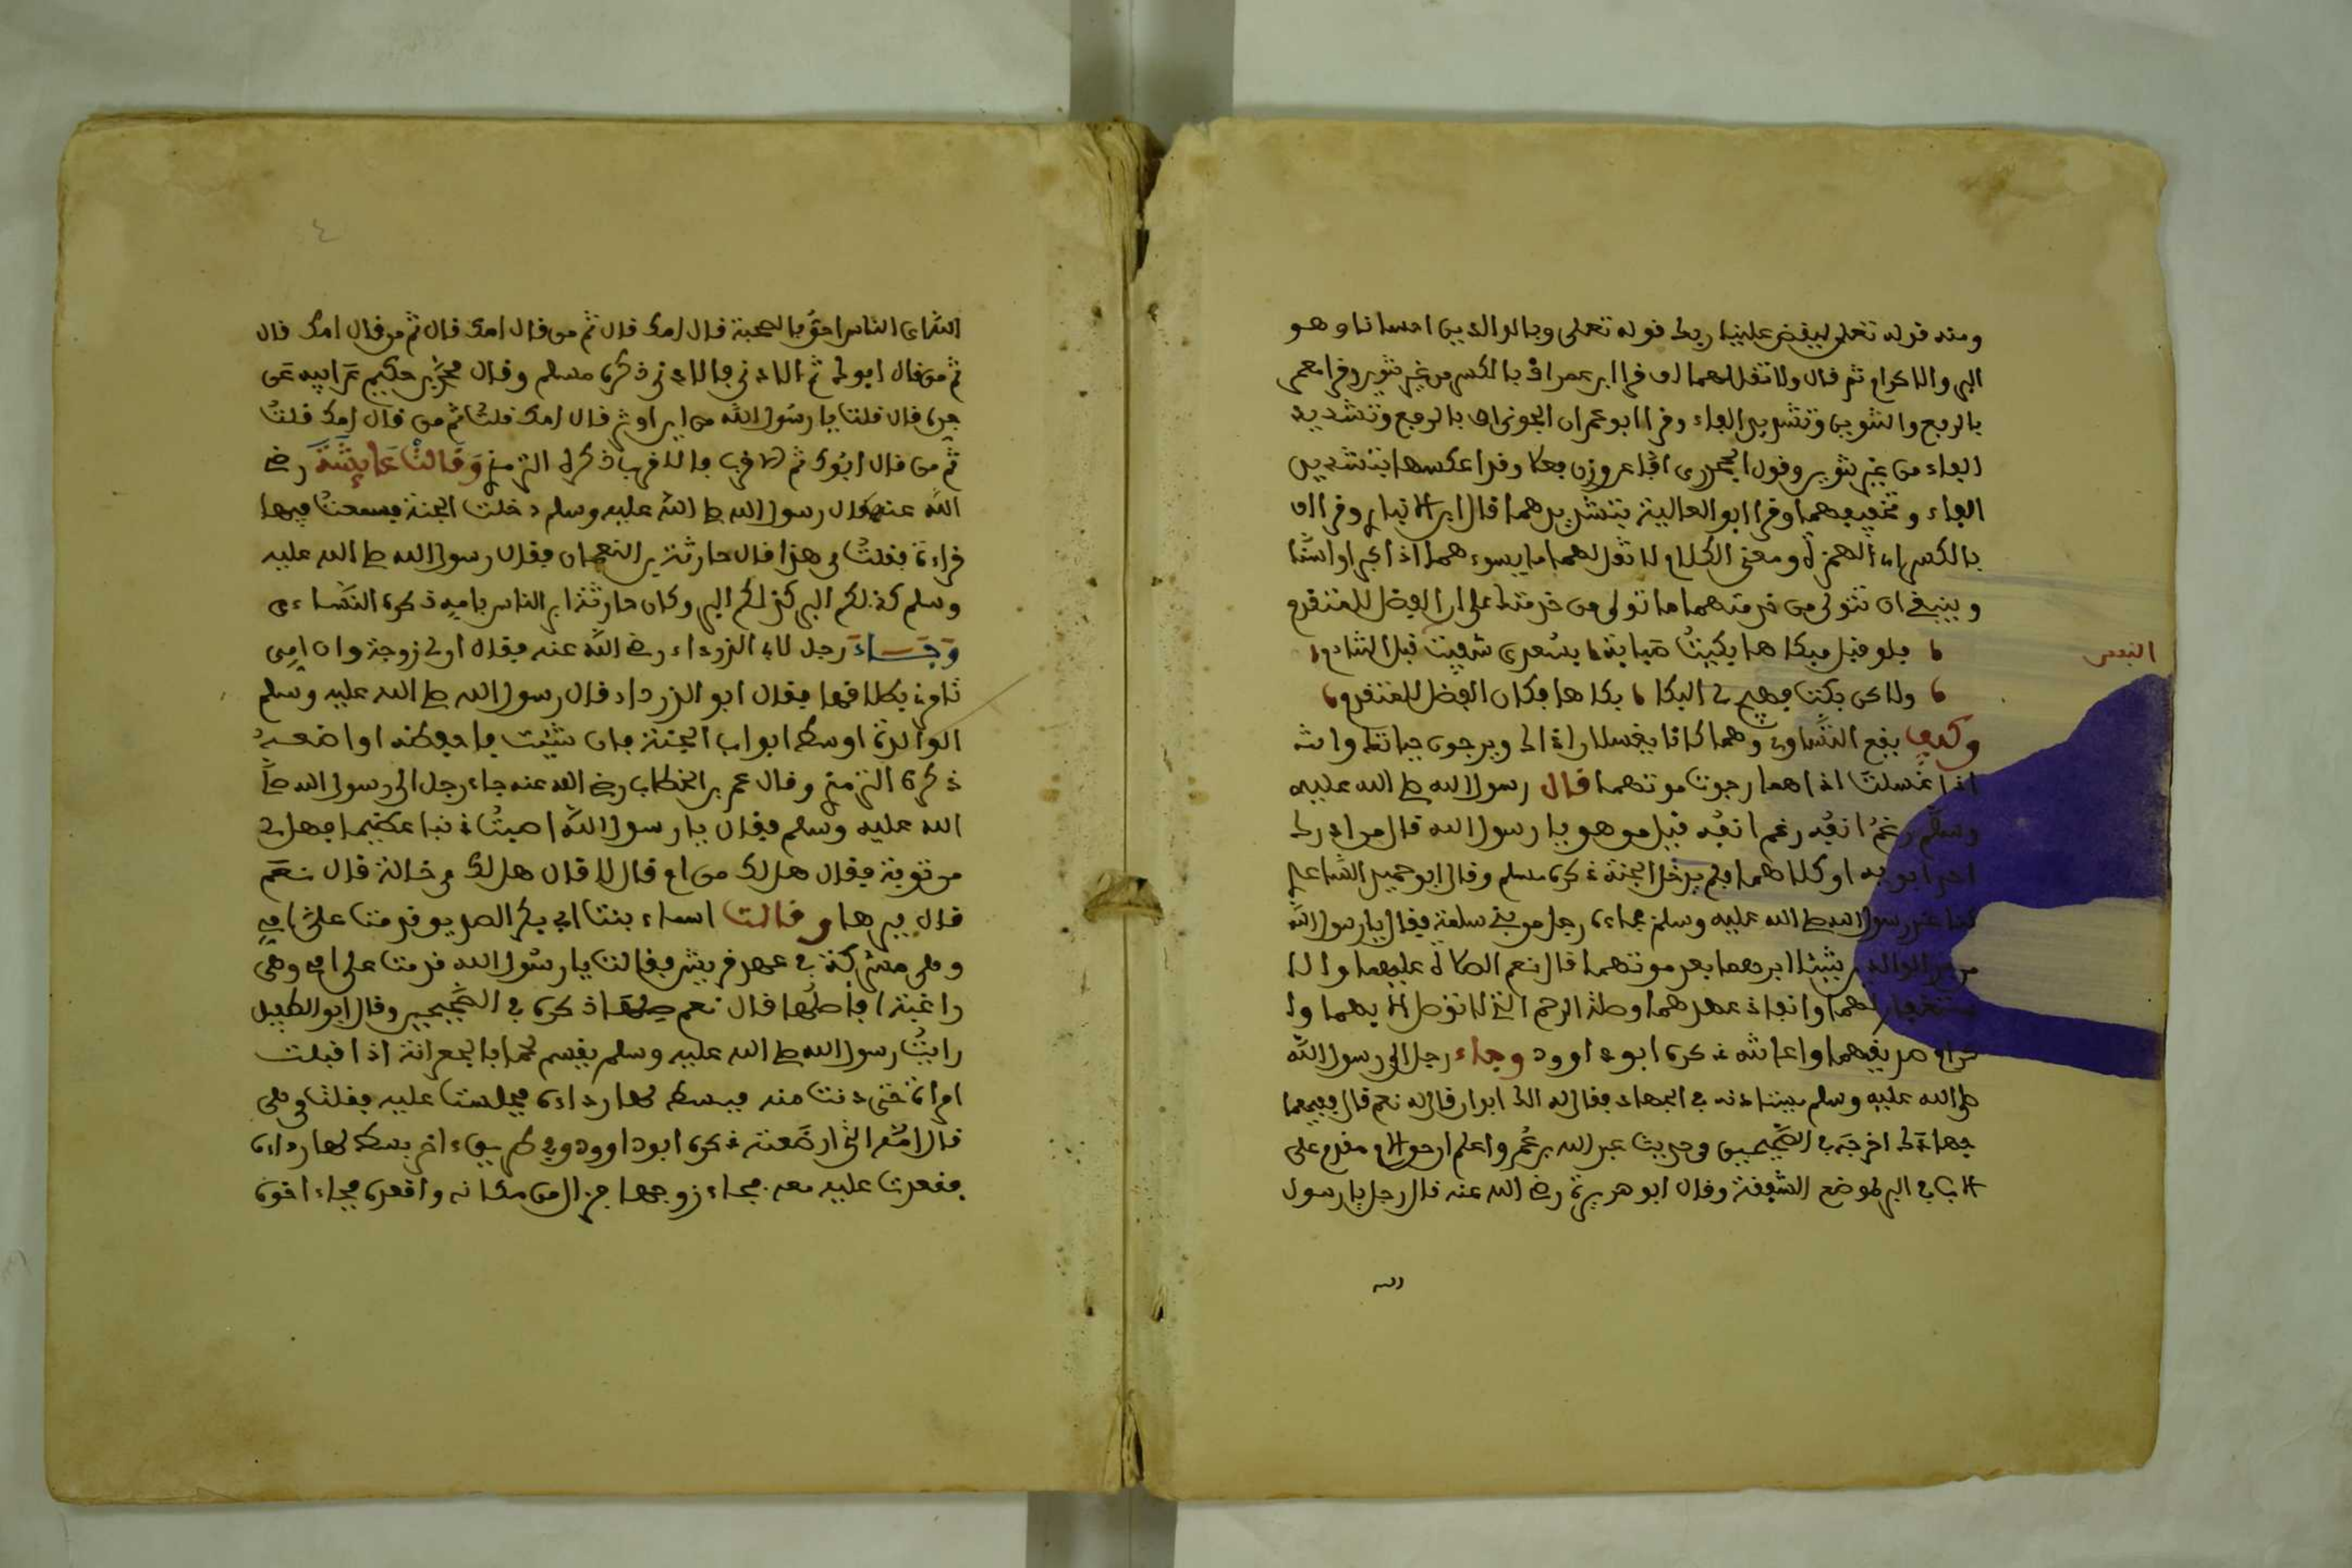 ومنه قوله تعلى ليقض علينا ربك قوله تعلى وبالوالدين احسانا وهو
البر والاكرام ثم قال ولا تقل لهما اف قرا ابن عمر اف بالكسر من غير تنوير وقرا معمر
بالرفع والتنوين وتشديد الفاء وقرا ابو عمران الجوني اف بالرفع وتشديد
الفاء من غير تنوير وقول الجحدري وقرا عكسها بتشديد
الفاء وتخفيفهما وقرا ابو العالية بتشديدهما قال ابن الانباري وقرا اف
بالكسر ومعنى الكلام لا تقل لهما ما يسوءهما اذا كبرا واسنا
وينبغي ان تتولى من خدمتهما ما تولى من خدمتك على ان الفضل للمتقدم
فلو قبل مبكاها بكيت صبابة بسعدى شفيت قبل التنادم
النفس
ولاكن بكت فهيج لي البكا بكاها فكان الفضل للمتقدم
وكيف يقع التساوي وهما كانا يغسلان اذاك ويرجون حياتك وانت
اذا غسلت اذاهما رجوت موتهما قال رسول الله صلى الله عليه
وسلم رغم انفه رغم انفه قيل من هو يا رسول الله قال من ادرك
احد ابويه او كلاهما فلم يدخل الجنة ذكره مسلم وقال ابو حميد الساعدي
كنا عند رسول الله صلى الله عليه وسلم فجاءه رجل من بني سلمة فقال يا رسول الله
من بر الوالدين شيئا ابرهما بعد موتهما قال نعم الصلاة عليهما والا
ستغفار لهما وانفاذ عهدهما وصلة الرحم التي لا توصل الا بهما وا
كرام صديقهما واعانته ذكره ابو داوود وجاء رجل الى رسول الله
صلى الله عليه وسلم يستاذنه في الجهاد فقال له الك ابوان قال له نعم قال ففيهما
جهادك اخرجه في الصحيحين من حديث عبد الله بن عمر واعلم ان حق الام مقدم على
الاب في البر لموضع الشفقة وقال ابو هريرة رضي الله عنه قال رجل يا رسول
الله
٤
الله اي الناس احق بالصحبة قال امك قال ثم من قال امك قال ثم من قال امك قال
ثم من قال ابوك ثم الادنى فالادنى ذكره مسلم وقال بن حكيم عن ابيه عن
جده قال قلت يا رسول الله من ابر قال امك قلت ثم من قال امك قلت
ثم من قال ابوك ثم الاقرب فالاقرب ذكره الترمذي وقالت عايشة رضي
الله عنها قال رسول الله صلى الله عليه وسلم دخلت الجنة فسمعت فيها
قراءة فقلت من هذا قال حارثة بن النعمان فقال رسول الله صلى الله عليه
وسلم كذلكم البر كذلكم البر وكان حارثة ابر الناس بامه ذكره النساءي
وجاء رجل لابي الدرداء رضي الله عنه فقال ان لي زوجة وان امي
تامرني بطلاقها فقال ابو الدرداء قال رسول الله صلى الله عليه وسلم
الوالدة اوسط ابواب الجنة فان شيت فاحفظه او اضعه
ذكره الترمذي وقال عمر بن الخطاب رضي الله عنه جاء رجل الى رسول الله صلى
الله عليه وسلم فقال يا رسول الله اصبت ذنبا عظيما فهل لي
من توبة فقال هل لك من ام قال لا قال هل لك من خالة قال نعم
قال برها وقالت اسماء بنت ابي بكر الصديق قدمت على امي
وهي مشركة في عهد قريش فقالت يا رسول الله قدمت على امي وهي
راغبة افاصلها قال نعم صلها ذكره في الصحيحين وقال ابو الطفيل
رايت رسول الله صلى الله عليه وسلم يقسم لحما بالجعرانة اذ اقبلت
امراة حتى دنت منه فبسط لها رداءه فجلست عليه فقلت من هي
قال امه التي ارضعته ذكره ابو داوود وفي اخر بسط لها رداءه
فقعدت عليه معه فجاء زوجها فنزل من مكانه واقعده فجاء اخوه